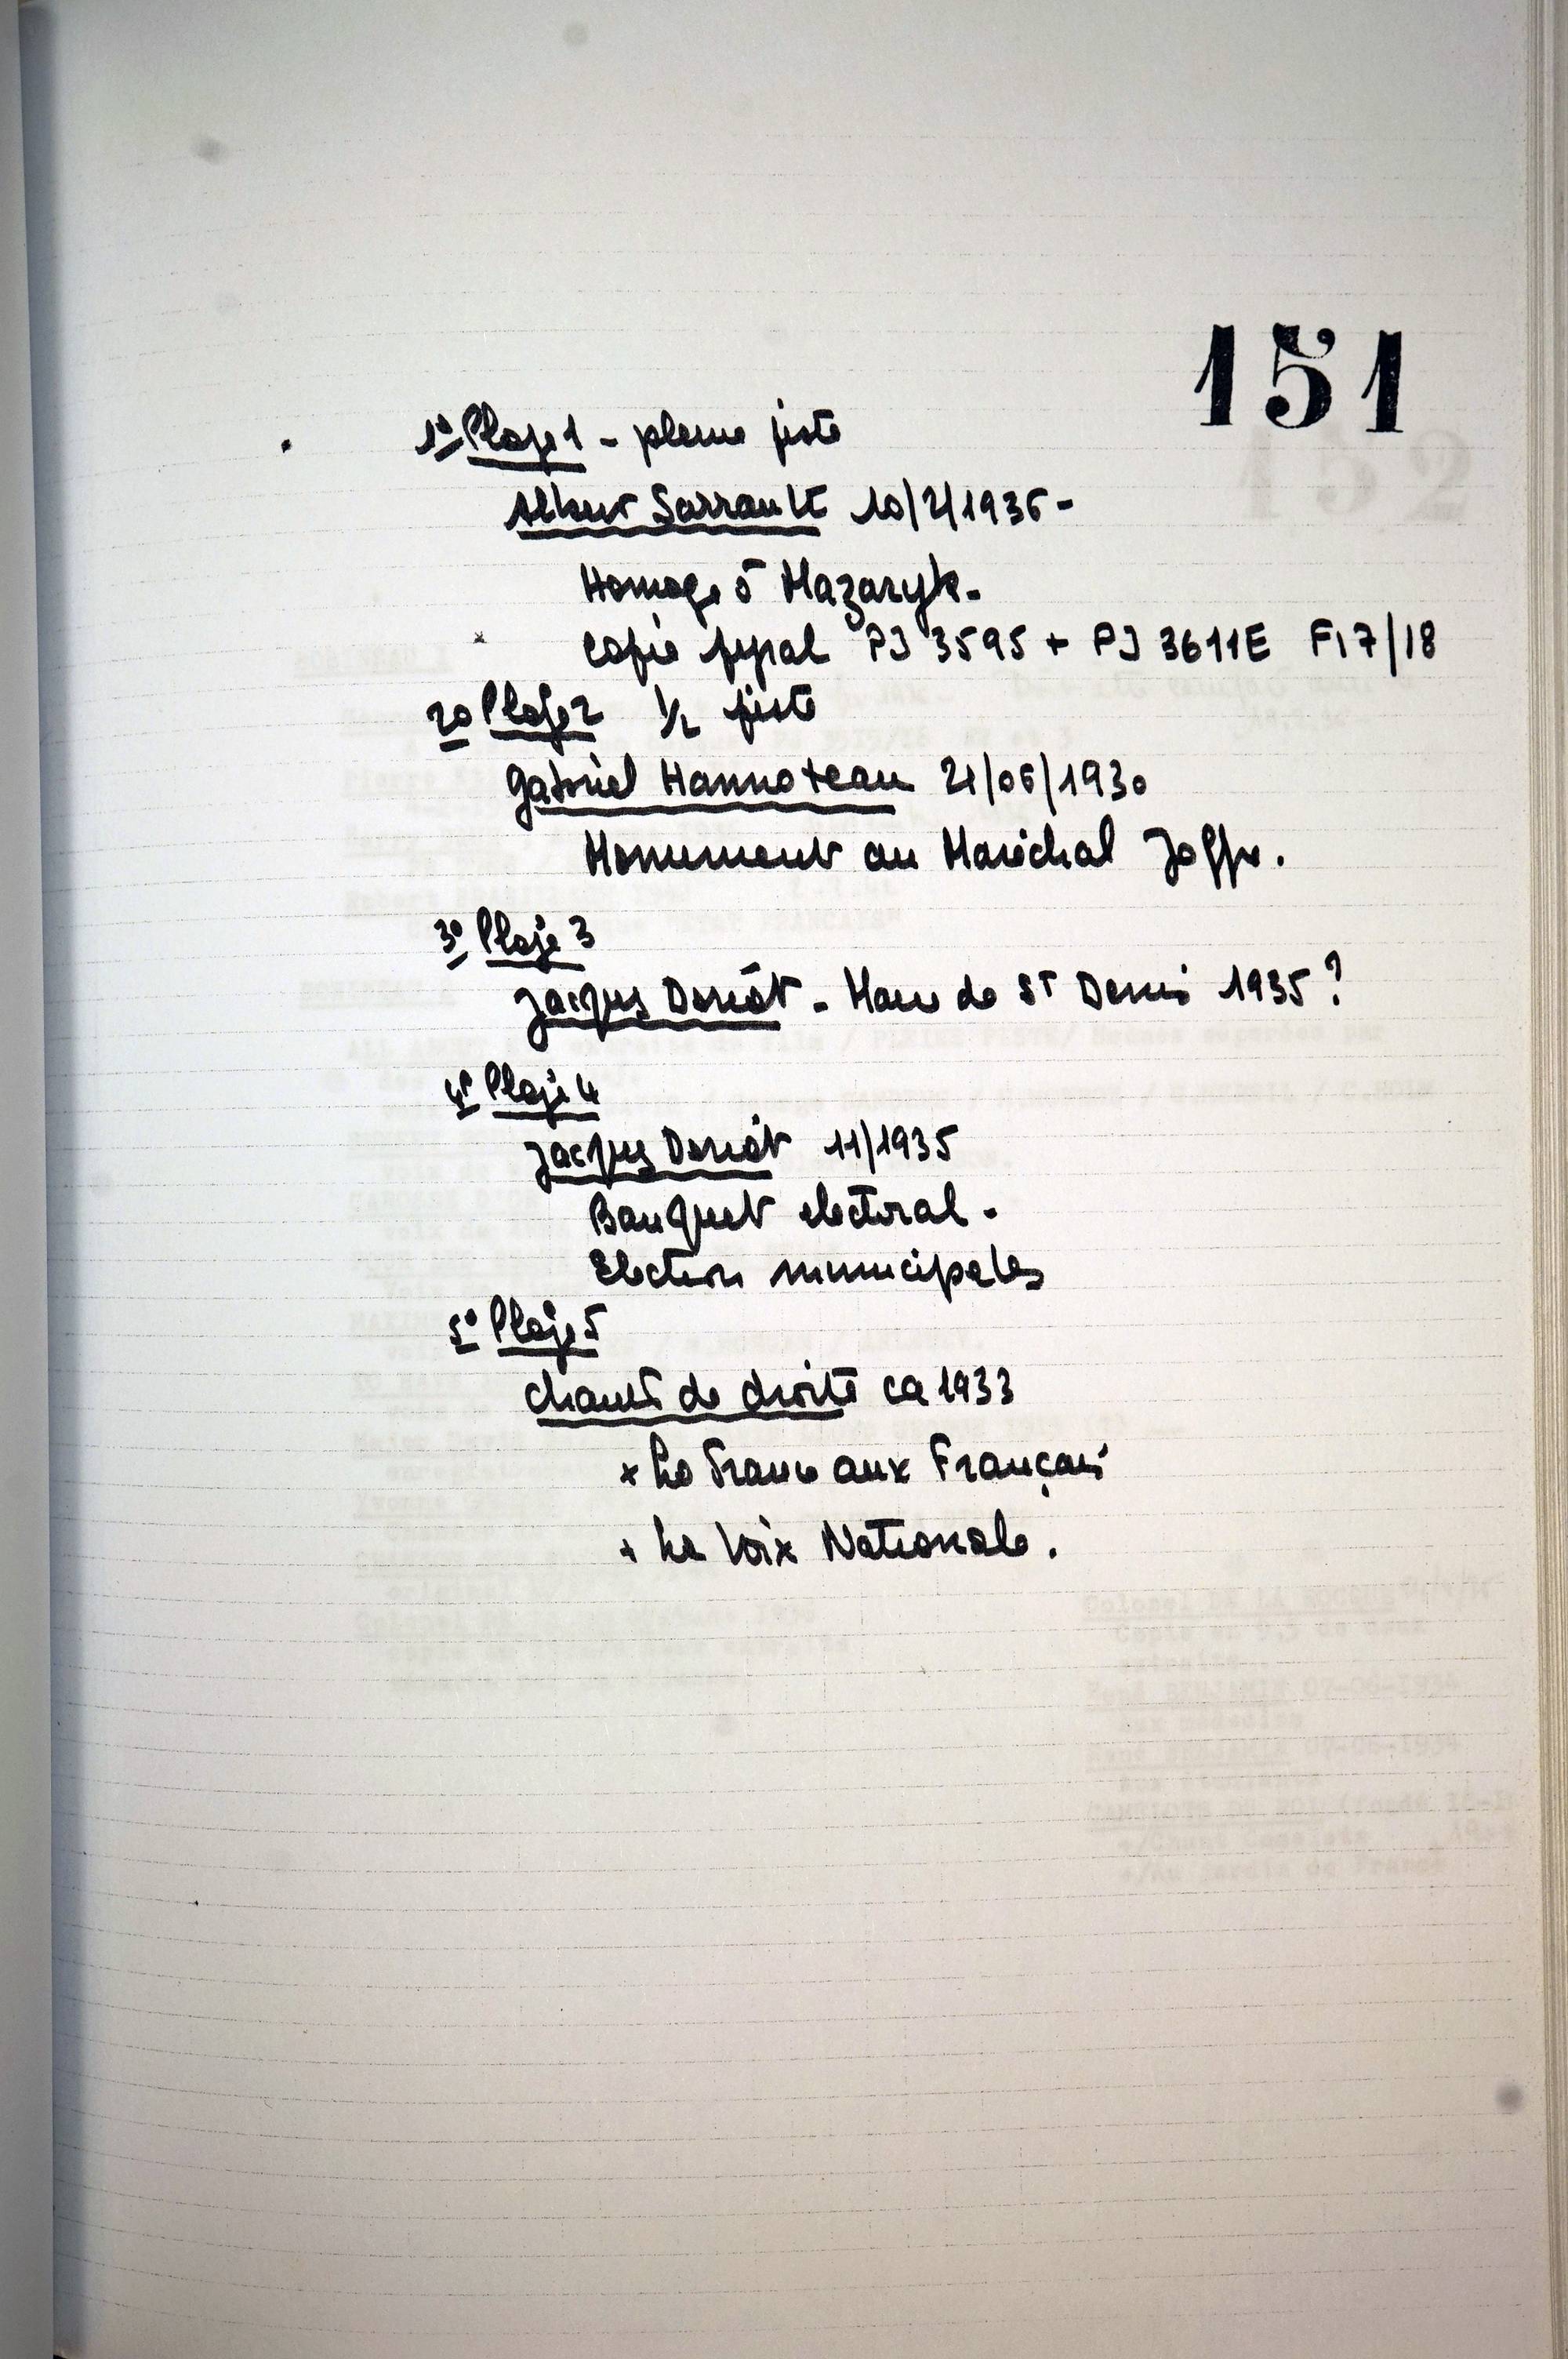 151
1° Plage 1 - pleine piste
Albert Sarrault 10/2/1936 -
Homage à Mazaryk.
copie pyral PJ 3595 + PJ 3611E F17/18
2° Plage 2 1/2 piste
Gabriel Hannoteau 21/06/1930
Monument au Maréchal Joffre.
3° Plage 3
Jacques Doriot - Maire de ST Denis 1935 ?
4° Plage 4
Jacques Doriot 11/1935
Banquet electoral -
Election municipales
5° Plage 5
chants de droite ca 1933
+ La France aux Français
+ La Voix Nationale.